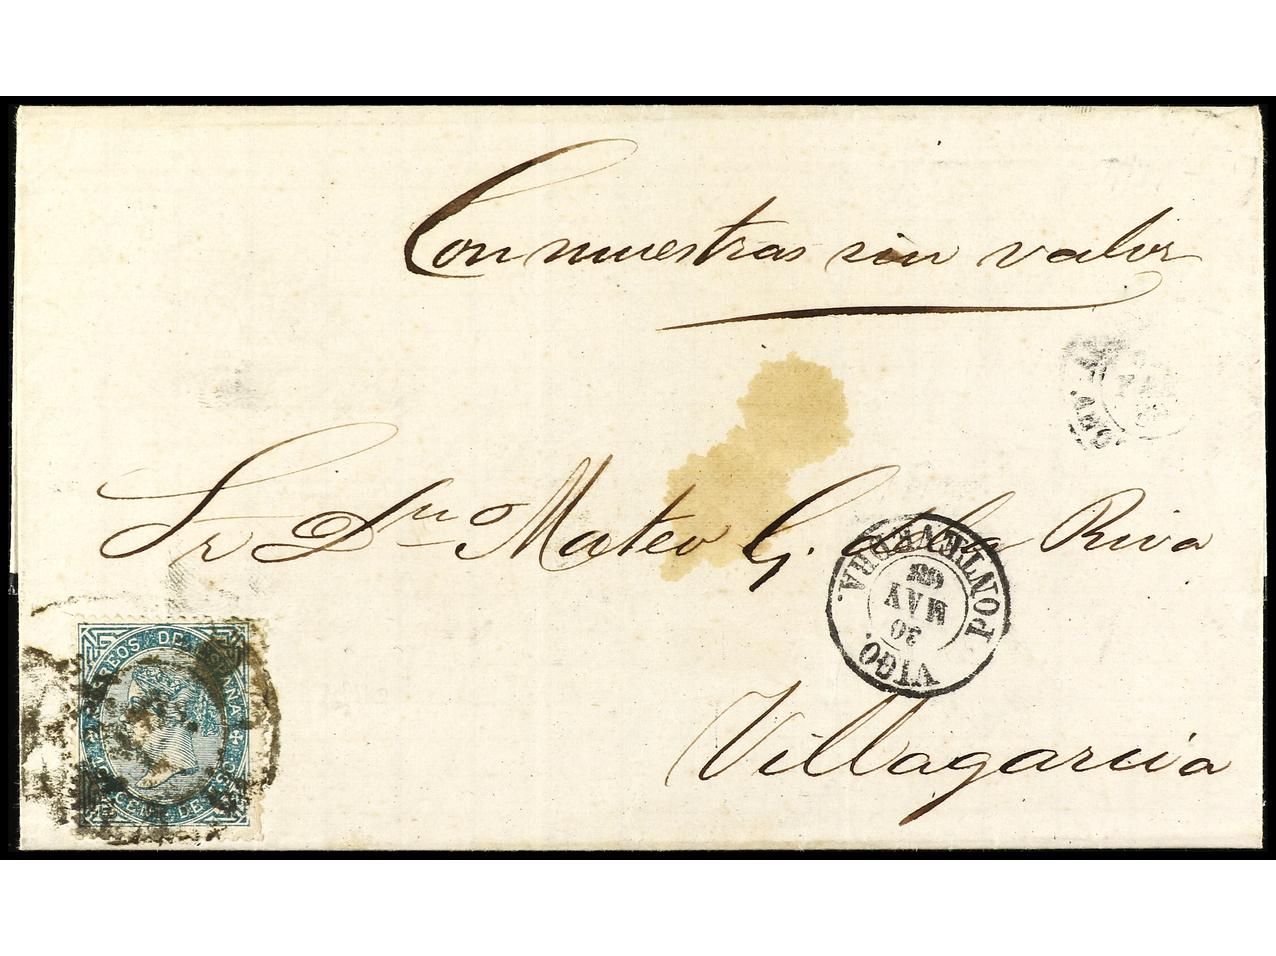 Con muestras sin valor
Sr Dn Mateo G. de la Riva
PONTEVEDRA.
MAY
VIGO.
CORREOS DE ESPAÑA
CENT. DE ESC.
Villagarcia